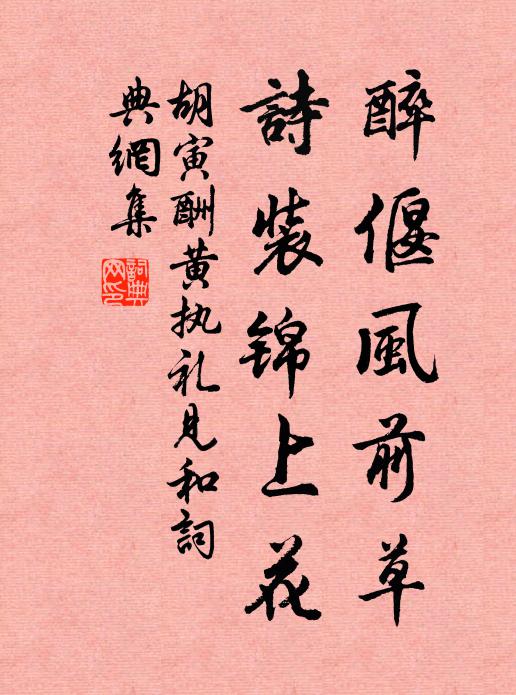 醉偃風前草
詩裝錦上花
胡寅酬黄执礼見和詞
典網集
詞典
网印